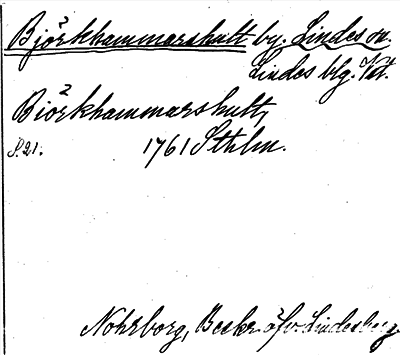 Björkhammarshult by. Lindes sn.
Lindes blg. Vstm.
Biörkhammarshult,
S. 21. 1761 Sthlm.
Nohrborg, Beskr. öfv. Lindesberg